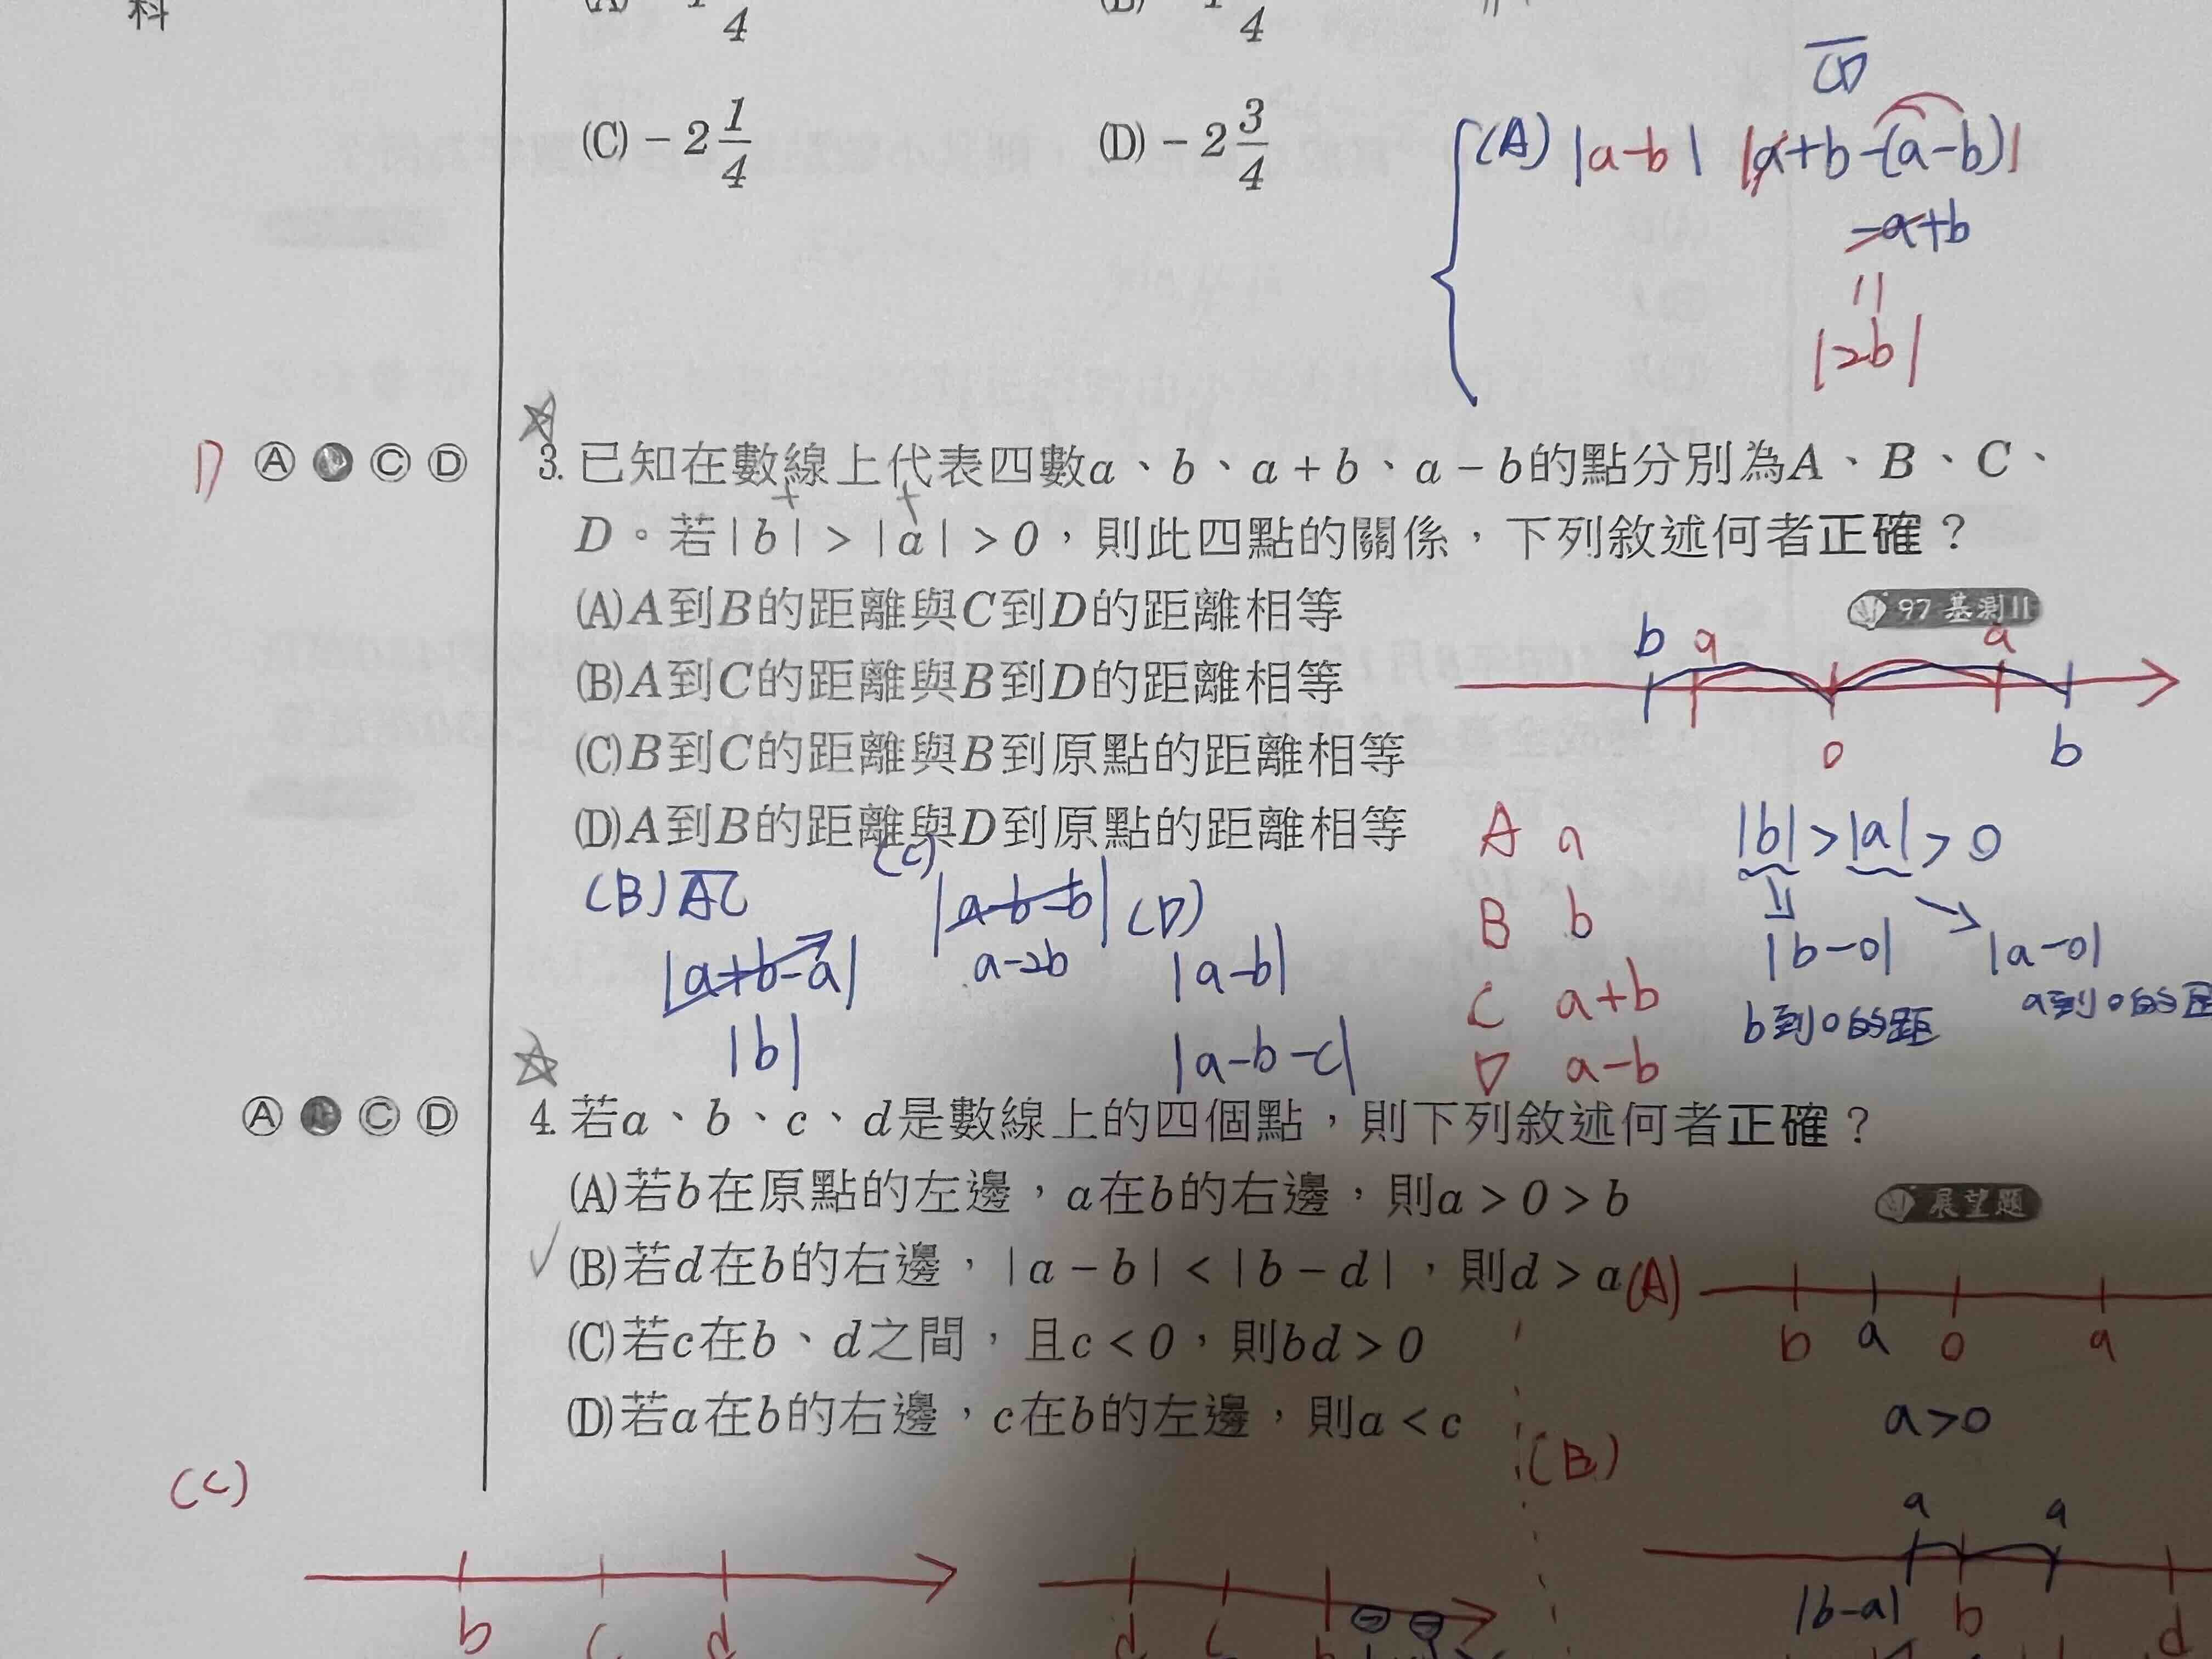 科
4
4
(C) -2 1/4
(D) -2 3/4
CD
(A) |a-b| |a+b-(a-b)|
-a+b
||
|2b|
D Ⓐ Ⓒ Ⓓ
3. 已知在數線上代表四數a、b、a+b、a-b的點分別為A、B、C、
D。若|b|>|a|>0,則此四點的關係,下列敘述何者正確?
(A)A到B的距離與C到D的距離相等
97基測II
(B)A到C的距離與B到D的距離相等
(C)B到C的距離與B到原點的距離相等
(D)A到B的距離與D到原點的距離相等
b a a
0 b
A a
B b
C a+b
D a-b
|b|>|a|>0
|b-0| |a-0|
b到0的距 a到0的
(B) AC
|a+b-a|
|b|
(C)
|a-b-b|
a-2b
(D)
|a-b|
|a-b-c|
Ⓐ Ⓒ Ⓓ
4. 若a、b、c、d是數線上的四個點,則下列敘述何者正確?
(A)若b在原點的左邊,a在b的右邊,則a>0>b
展望題
(B)若d在b的右邊,|a-b|<|b-d|,則d>a
(C)若c在b、d之間,且c<0,則bd>0
(D)若a在b的右邊,c在b的左邊,則a<c
(A)
b a 0 a
a>0
(B)
a a
|b-a| b d
(C)
b c d
d c b